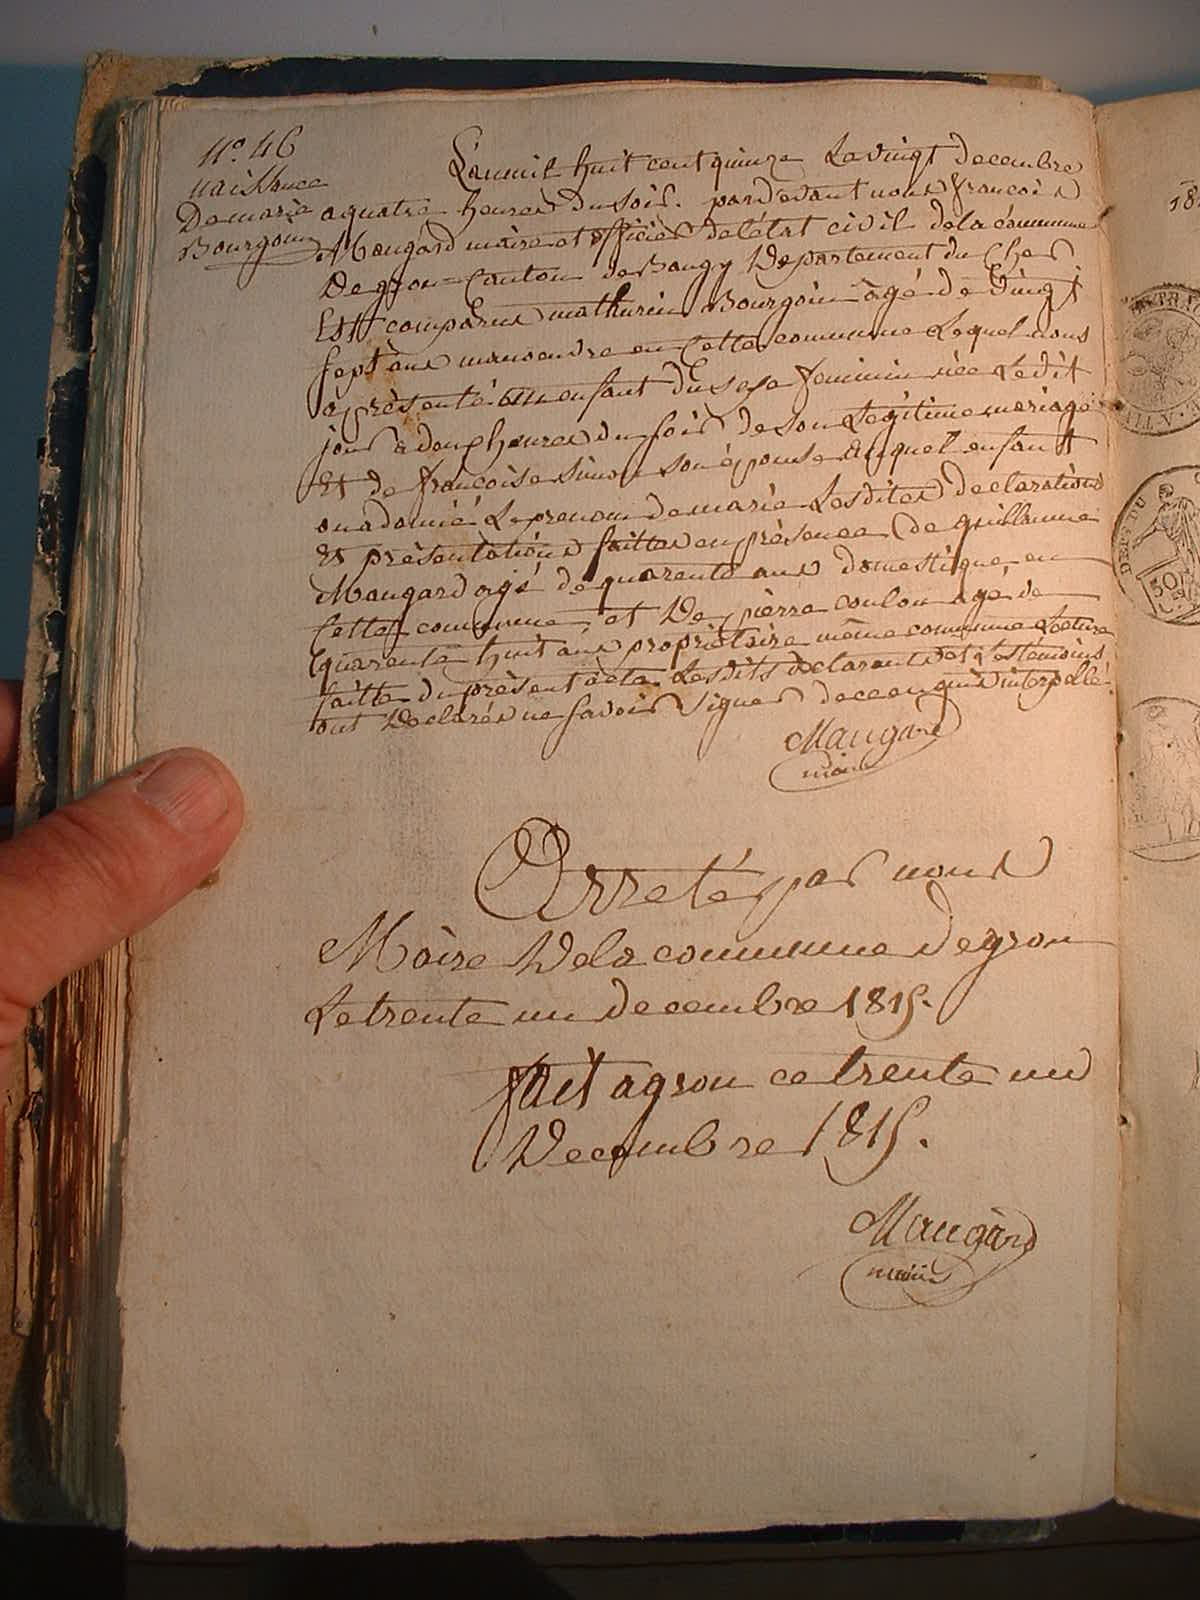 n.o 46
naissance
De marie
Bourgoin
L'an mil huit cent quinze Le vingt decembre
a quatre heures du soir. pardevant nous francois
Maugard maire et officier de l'état civil de la commune
De gron Canton de Baugy Departement du Cher
Est comparu mathurin Bourgoin âgé de vingt
sept ans manoeuvre en cette commune Lequel nous
a présenté un enfant du sexe feminin née Ledit
jour a heures du soir de son Légitime mariage
Et de françoise Simon son épouse auquel enfant
on a donné Le prenom de marie Lesdites declarations
Et présentations faittes en présence de guillaume
Maugard agé de quarente ans domestique en
Cette commune et De pierre coulon agé de
quarente huit ans propriètaire même commune Lecture
faitte du présent acte Lesdits declarant et temoins
ont Declarés ne savoir signer de ce enquis interpellé
Maugard
maire
Arreté par nous
Maire De la commune De gron
Le trente un decembre 1815.
fait a gron ce trente un
Decembre 1815.
Maugard
maire
18
DEP. DU
50